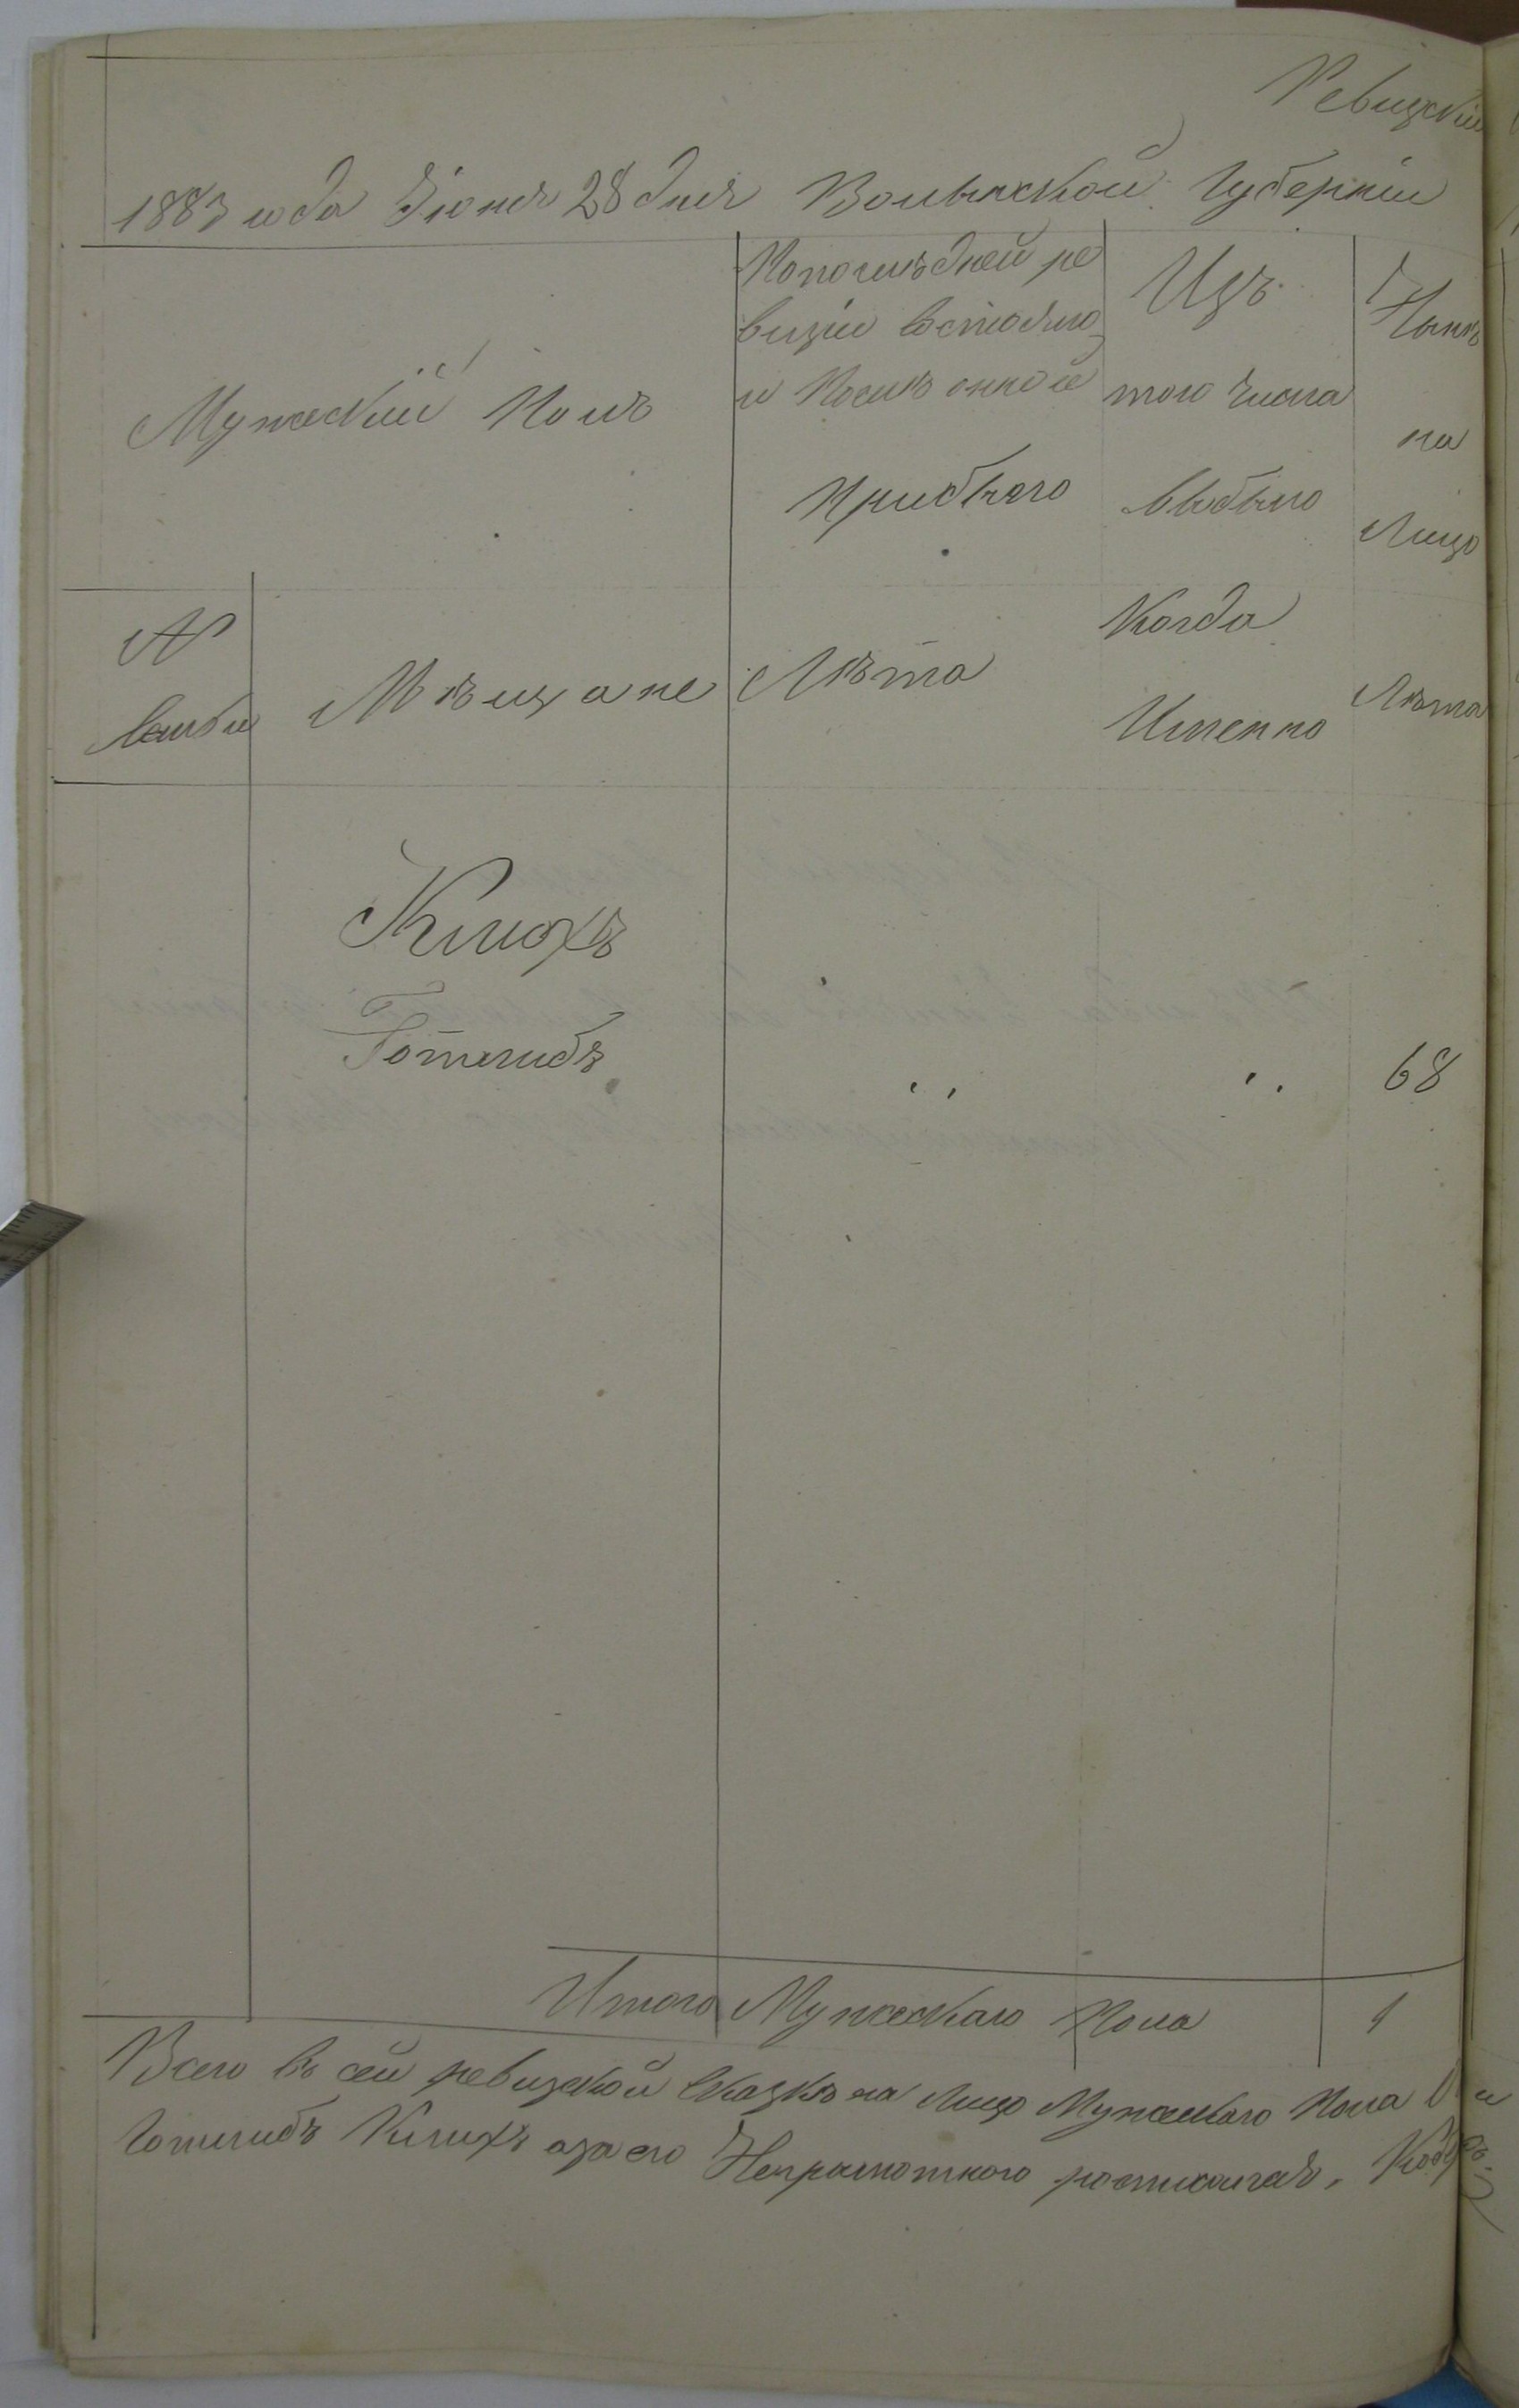 Ревизскій
1883 года Іюня 28 дня Волынской Губерніи
Мужескій Полъ
Попослѣдней ре
визіи состояло
и Послѣ онной
Прибыло
Изъ
того числа
выбыло
Нынѣ
на
Лицо
№
семьи
Мѣщане
Лѣта
Когда
Именно
Лѣта
Климъ
Готлибъ
68
Итого Мужескаго Пола 1
Всего въ сей ревизской сказкѣ на Лицо Мужескаго Пола
Готлибъ азаего Неграмотного росписался,